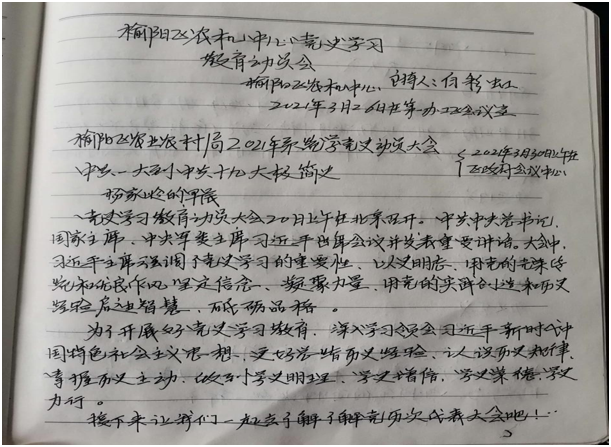 榆阳区农机中心党史学习
教育动员会
榆阳区农机中心 主持人:白彩虹
2021年3月26日在第办公会议室
榆阳区农业农村局2021年系统学党史动员大会
2021年3月30日上午在
区政府会议中心
中共一大到中共十九大极简史
杨家岭的早晨
党史学习教育动员大会20日上午在北京召开。中共中央总书记、
国家主席、中央军委主席习近平出席会议并发表重要讲话。大会中,
习近平主席强调了党史学习的重要性、以史明志、用党的光荣传
统和优良作风坚定信念、凝聚力量,用党的实践创造和历史
经验启迪智慧、砥砺品格。
为了开展好党史学习教育,深入学习领会习近平新时代中
国特色社会主义思想,更好总结历史经验、认识历史规律、
掌握历史主动,做到学史明理、学史增信、学史崇德、学史
力行。
接下来让我们一起去了解了解党历次代表大会吧!